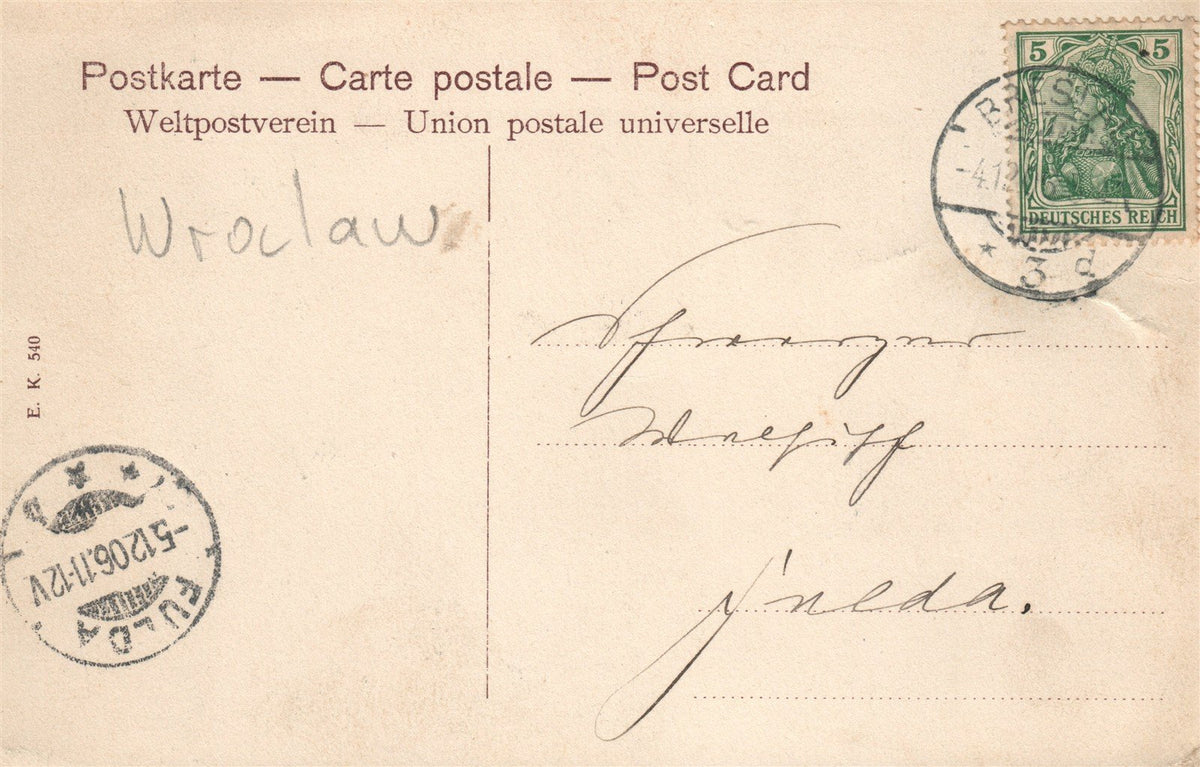 Postkarte — Carte postale — Post Card
Weltpostverein — Union postale universelle
5 5
DEUTSCHES REICH
BRESL
-4.12
* 3 d
Wroclaw
E. K. 540
Fulda.
FULDA
-5.12.06.11-12V